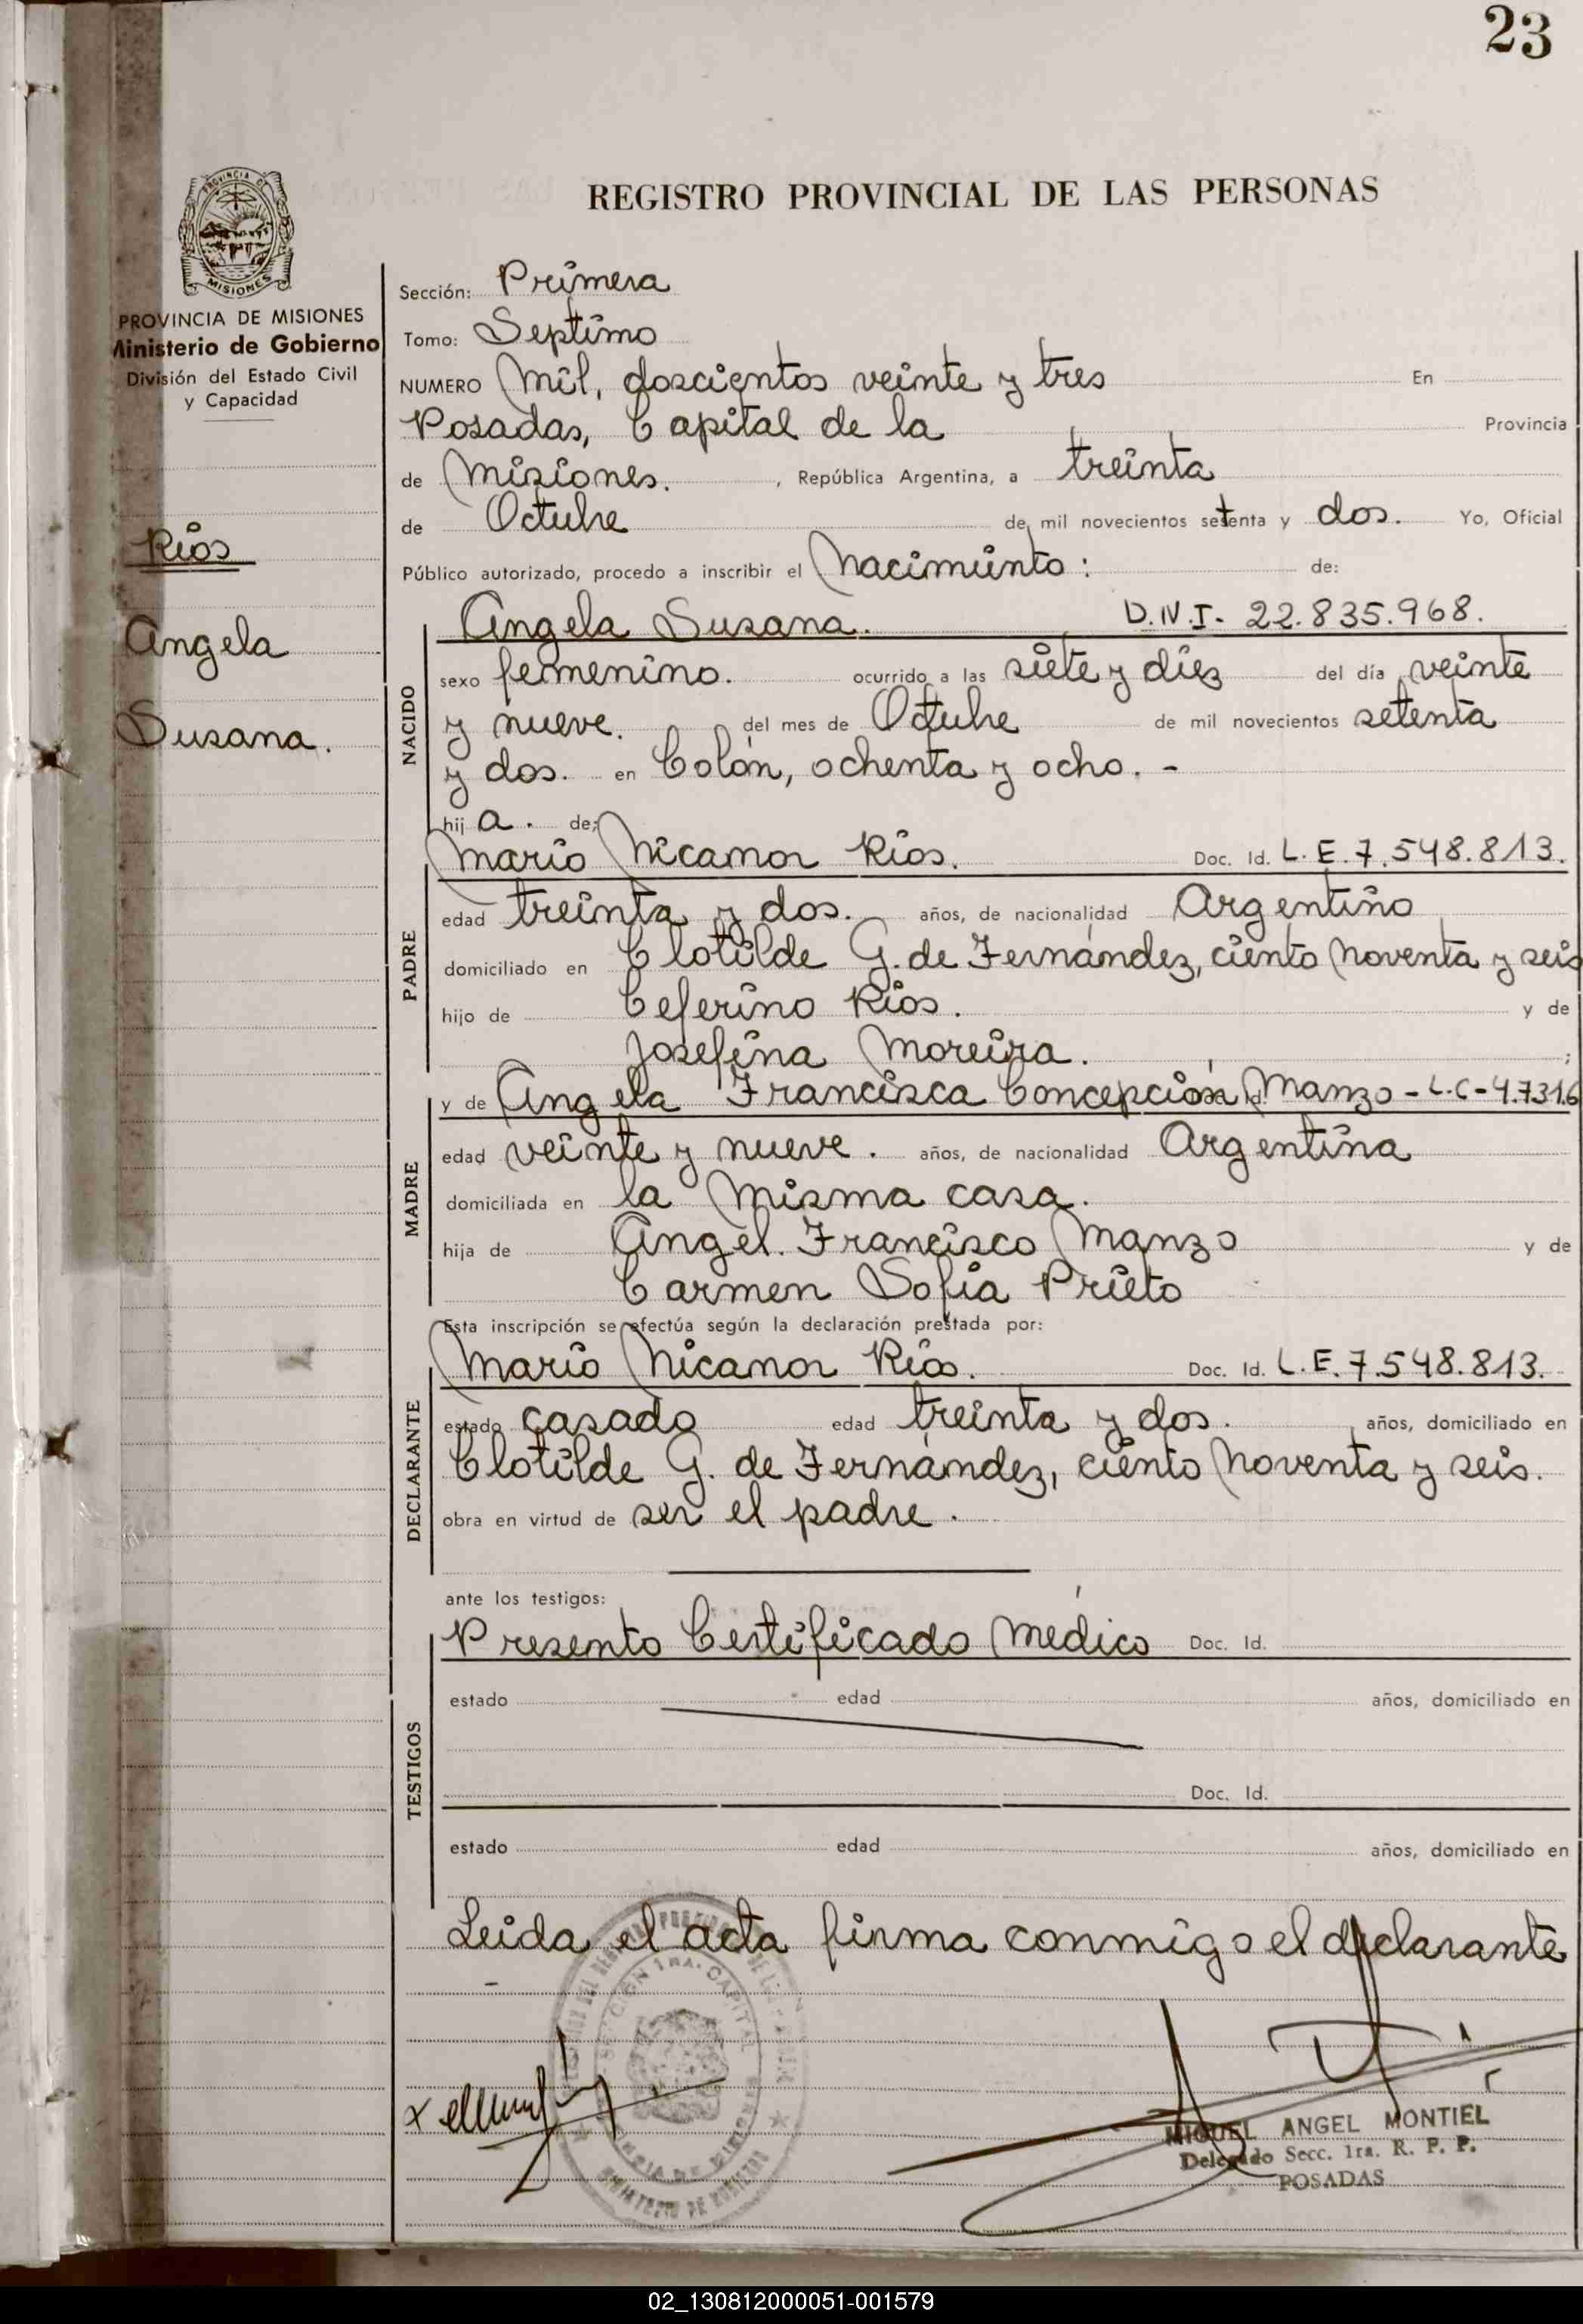 23
REGISTRO PROVINCIAL DE LAS PERSONAS
PROVINCIA DE
MISIONES
PROVINCIA DE MISIONES
Ministerio de Gobierno
División del Estado Civil
y Capacidad
Ríos
Angela
Susana.
Sección: Primera
Tomo: Septimo
NUMERO Mil, doscientos veinte y tres En
Posadas, Capital de la Provincia
de Misiones. , República Argentina, a treinta
de Octubre de mil novecientos setenta y dos. Yo, Oficial
Público autorizado, procedo a inscribir el Nacimiento: de:
NACIDO
Angela Susana. D.N.I. 22.835.968.
sexo femenino. ocurrido a las siete y diez del día veinte
y nueve. del mes de Octubre de mil novecientos setenta
y dos. en Colón, ochenta y ocho. -
hij a. de:
PADRE
Mario Nicanor Ríos. Doc. Id. L.E. 7.548.813.
edad treinta y dos. años, de nacionalidad Argentino
domiciliado en Clotilde G. de Fernández, ciento noventa y seis
hijo de Ceferino Ríos. y de
Josefina Moreira. ;
MADRE
y de Angela Francisca Concepción Manzo - L.C - 4.731.6
edad veinte y nueve. años, de nacionalidad Argentina
domiciliada en la misma casa.
hija de Angel Francisco Manzo y de
Carmen Sofía Prieto
Esta inscripción se efectúa según la declaración prestada por:
DECLARANTE
Mario Nicanor Ríos. Doc. Id. L.E. 7.548.813.
estado casado edad treinta y dos. años, domiciliado en
Clotilde G. de Fernández, ciento noventa y seis.
obra en virtud de ser el padre.
ante los testigos:
TESTIGOS
Presento Certificado Médico Doc. Id.
estado edad años, domiciliado en
Doc. Id.
estado edad años, domiciliado en
Leida el acta firma conmigo el declarante
SECCION 1RA. CAPITAL
MIGUEL ANGEL MONTIEL
Delegado Secc. 1ra. R. P. P.
POSADAS
02_130812000051-001579